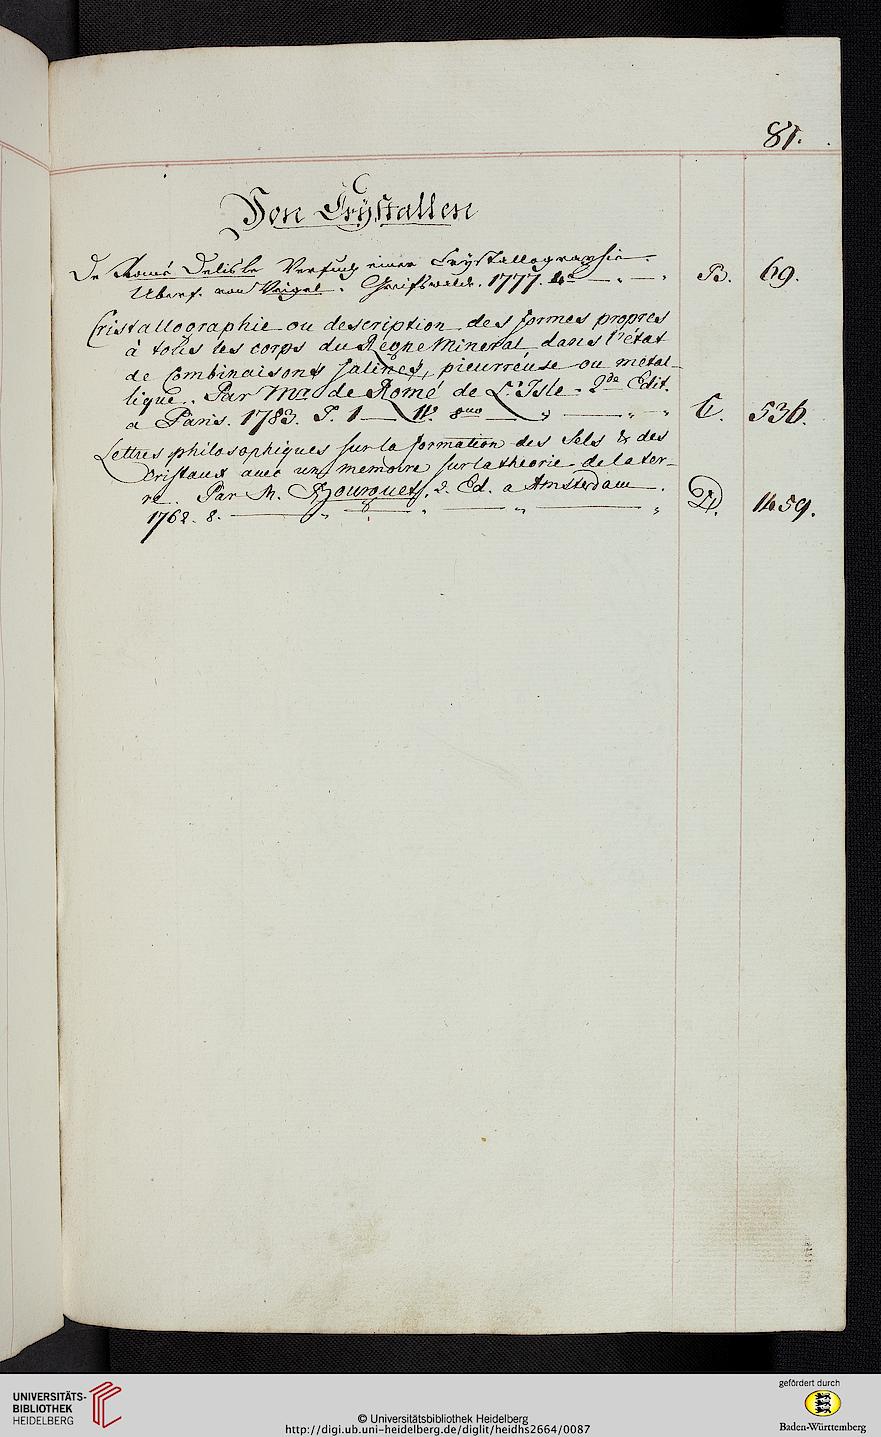 81.
Von Crÿstallen
De Romé Delisle Versuch einer Crÿstallographie.
Übers. von Weigel. Greifswalde. 1777. 4° B. 69.
Cristallographie ou description des formes propres
à tous les corps du Regne Mineral dans l'état
de Combinaisons salines, pieurreuse ou metal-
lique. Par Mr. de Romé de L'Isle. 2de Edit.
a Paris. 1783. T. 1 — IV. 8vo C. 536.
Lettres philosophiques sur la formation des Sels & des
Cristaux avec un memoire sur la theorie de la ter-
re. Par M. Bourguet, 2. Ed. a Amsterdam.
1762. 8. D. 1459.
UNIVERSITÄTS-
BIBLIOTHEK
HEIDELBERG
© Universitätsbibliothek Heidelberg
http://digi.ub.uni-heidelberg.de/diglit/heidhs2664/0087
gefördert durch
Baden-Württemberg